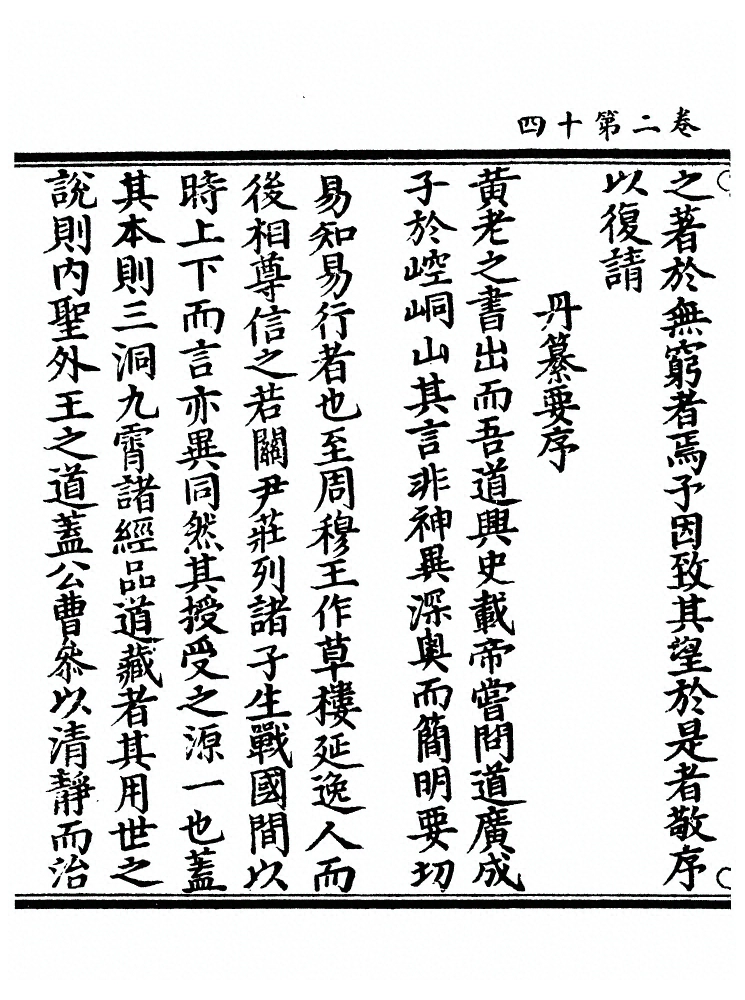 卷二第十四
之著於無窮者焉予因致其望於是者敬序
以復請
丹纂要序
黃老之書出而吾道興史載帝嘗問道廣成
子於崆峒山其言非神異深奧而簡明要切
易知易行者也至周穆王作草樓延逸人而
後相尊信之若關尹莊列諸子生戰國間以
時上下而言亦異同然其授受之源一也蓋
其本則三洞九霄諸經品道藏者其用世之
說則內聖外王之道蓋公曹叅以清靜而治